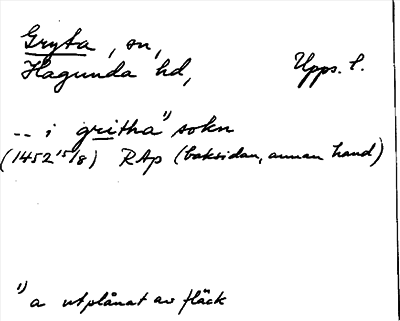 Gryta, sn,
Hagunda hd, Upps. l.
-- i gritha¹⁾ sokn
(1452 15/8) RAp (baksidan, annan hand)
¹⁾ a utplånat av fläck